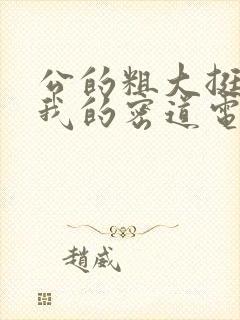 公的粗大挺
我的密道電
趙威